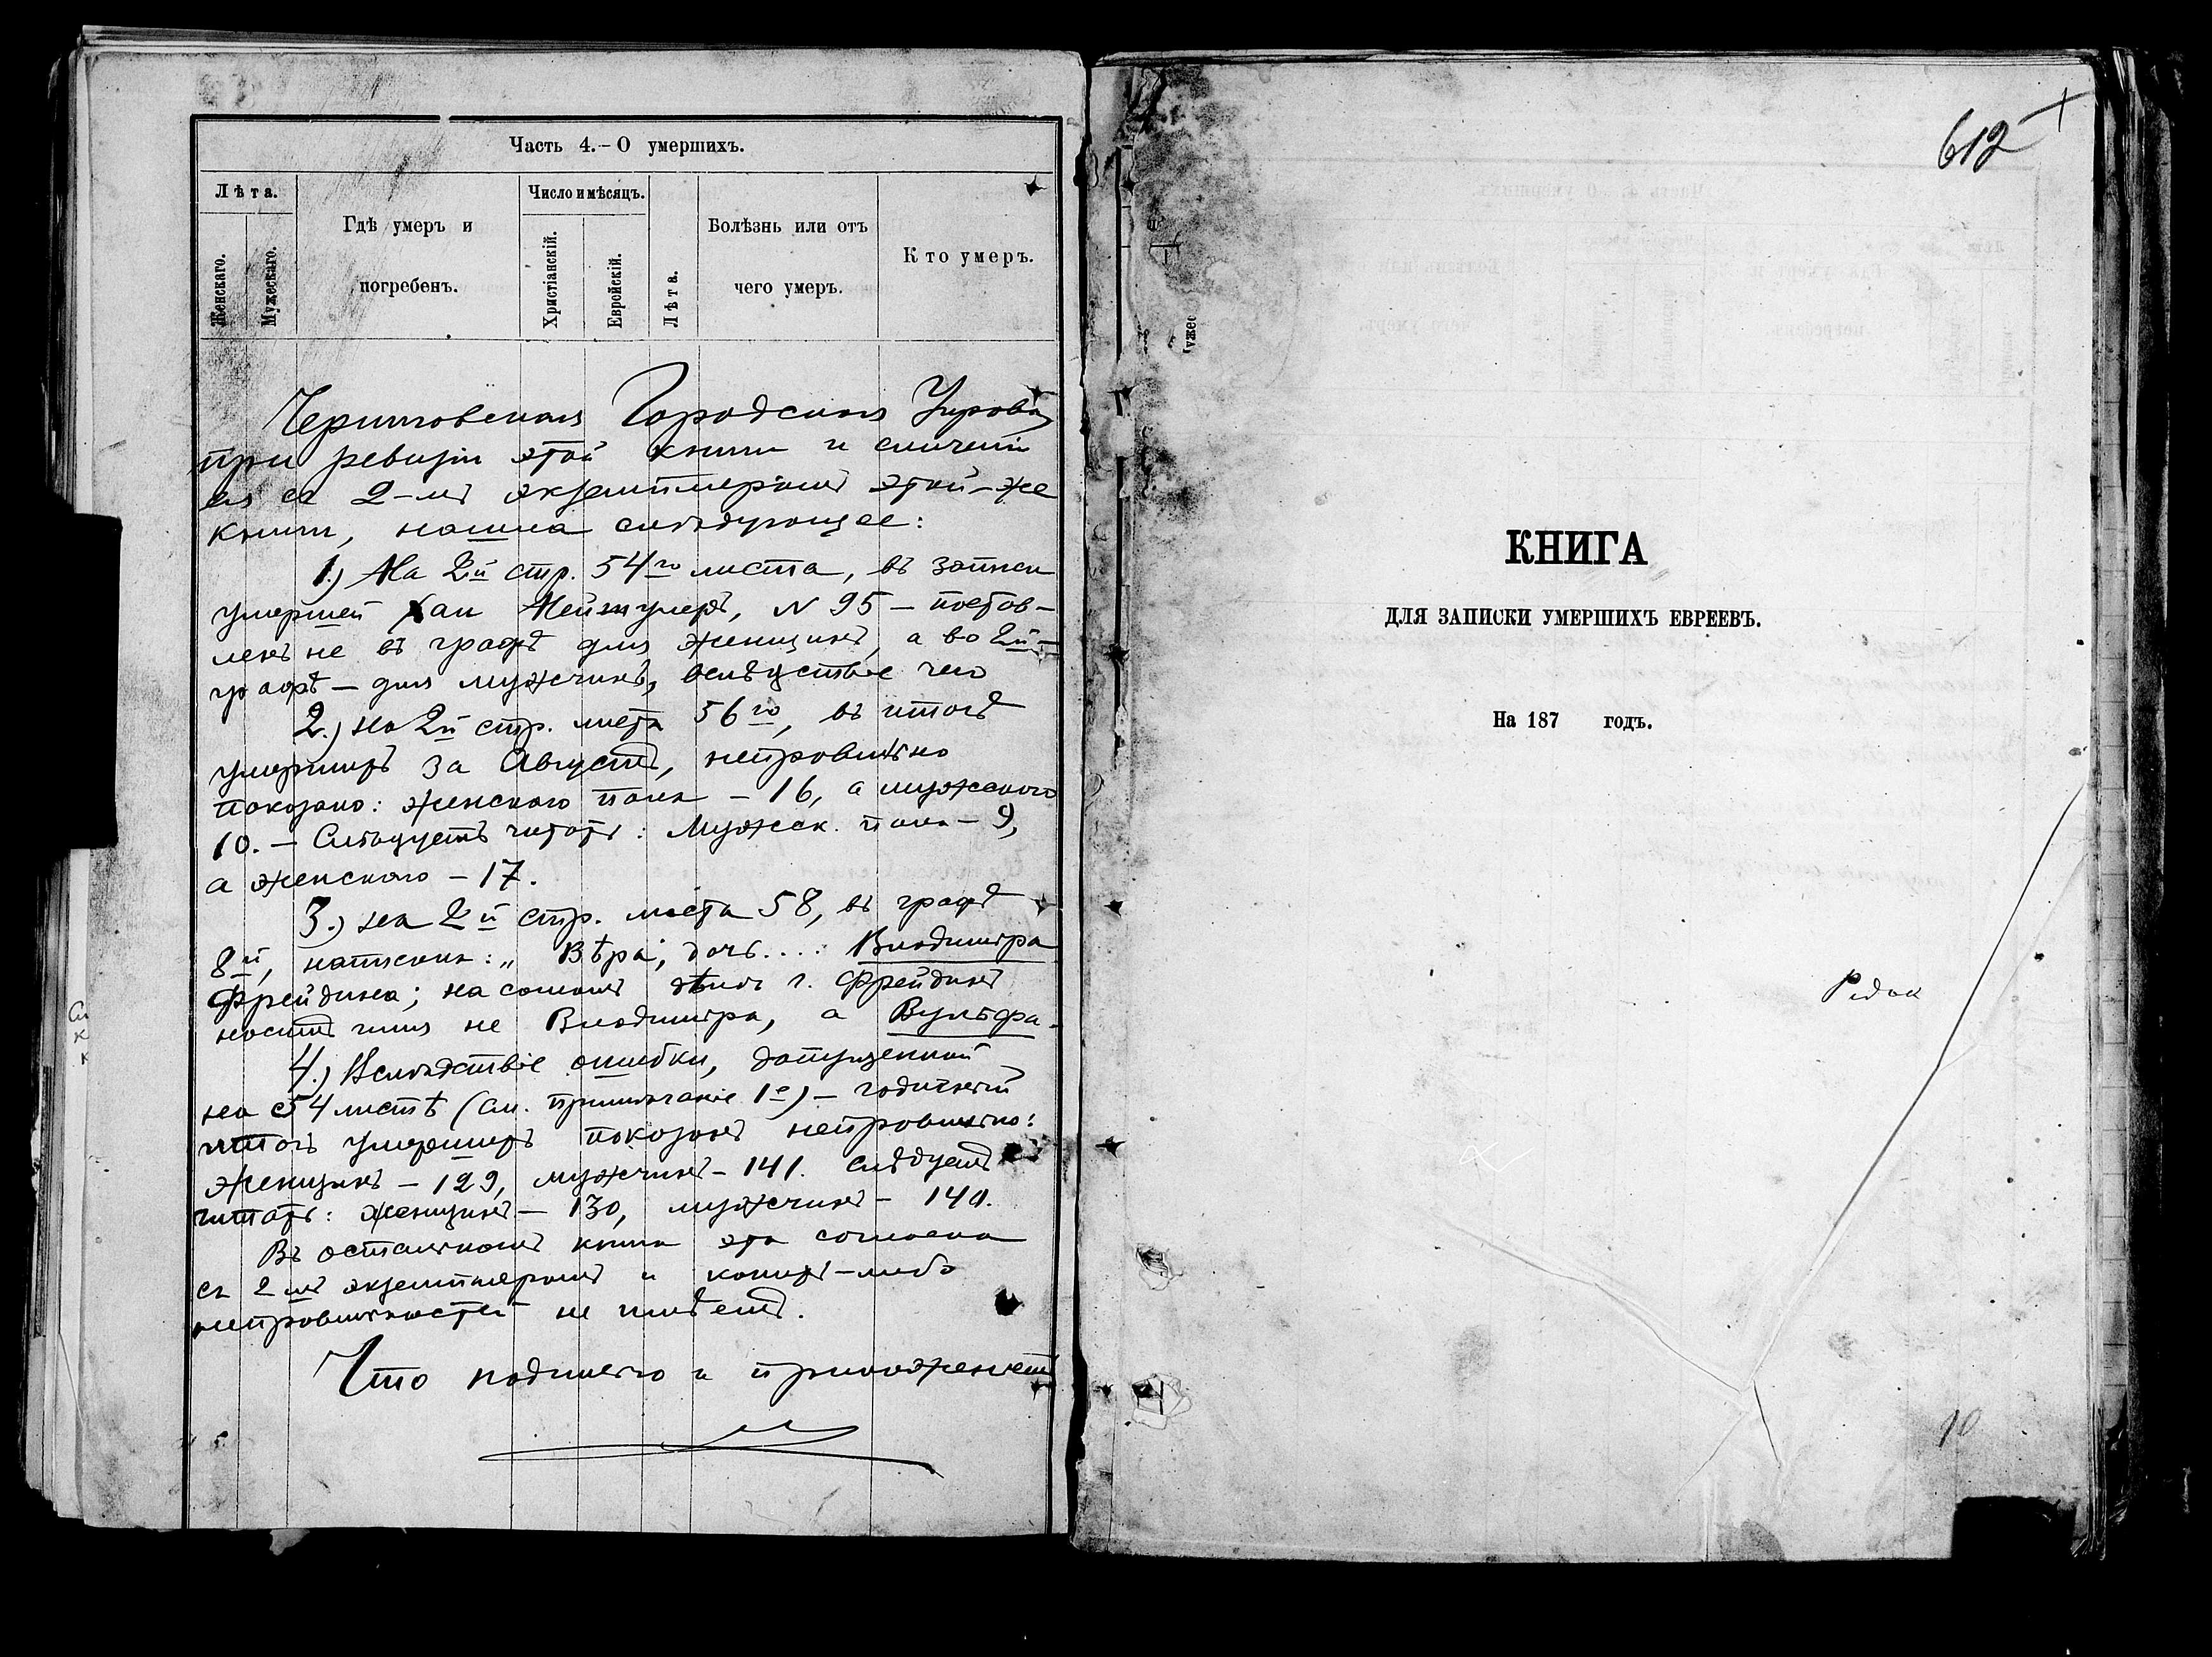 Часть 4.—О умершихъ.
Лѣта.
Женскаго.
Мужескаго.
Гдѣ умеръ и
погребенъ.
Число и мѣсяцъ.
Христіанскій.
Еврейскій.
Лѣта.
Болѣзнь или отъ
чего умеръ.
Кто умеръ.
Черниговская Городская Управа
при ревизіи этой книги и сличеніи
ея съ 2-мъ экземпляромъ этой-же
книги, нашла слѣдующее:
1.) На 2й стр. 54го листа, въ записи
умершей Хаи № 95 — постав-
ленъ не въ графѣ для женщинъ, а во 2й —
графѣ — для мужчинъ, вслѣдствіе чего
2.) на 2й стр. листа 56го, въ итогѣ
умершихъ за Августъ, неправильно
показано: женскаго пола — 16, а мужскаго
10. — Слѣдуетъ читать: Мужск. пола — 9,
а женскаго — 17.
3.) на 2й стр. листа 58, въ графѣ
8й, написано: „Вѣра, дочь....: Владиміра
Фрейдина; на самомъ дѣлѣ г. Фрейдинъ
носитъ имя не Владиміра, а Вульфа.
4.) Вслѣдствіе ошибки, допущенной
на 54 листѣ (см. примѣчаніе 1е) — годичный
итогъ умершихъ показанъ неправильно:
женщинъ — 129, мужчинъ — 141. Слѣдуетъ
читать: женщинъ — 130, мужчинъ — 140.
Въ остальномъ книга эта согласна
съ 2мъ экземпляромъ и какихъ-либо
неправильностей не имѣетъ.
Что подписью и приложеніемъ
612
ужес
КНИГА
ДЛЯ ЗАПИСКИ УМЕРШИХЪ ЕВРЕЕВЪ.
На 187 годъ.
10